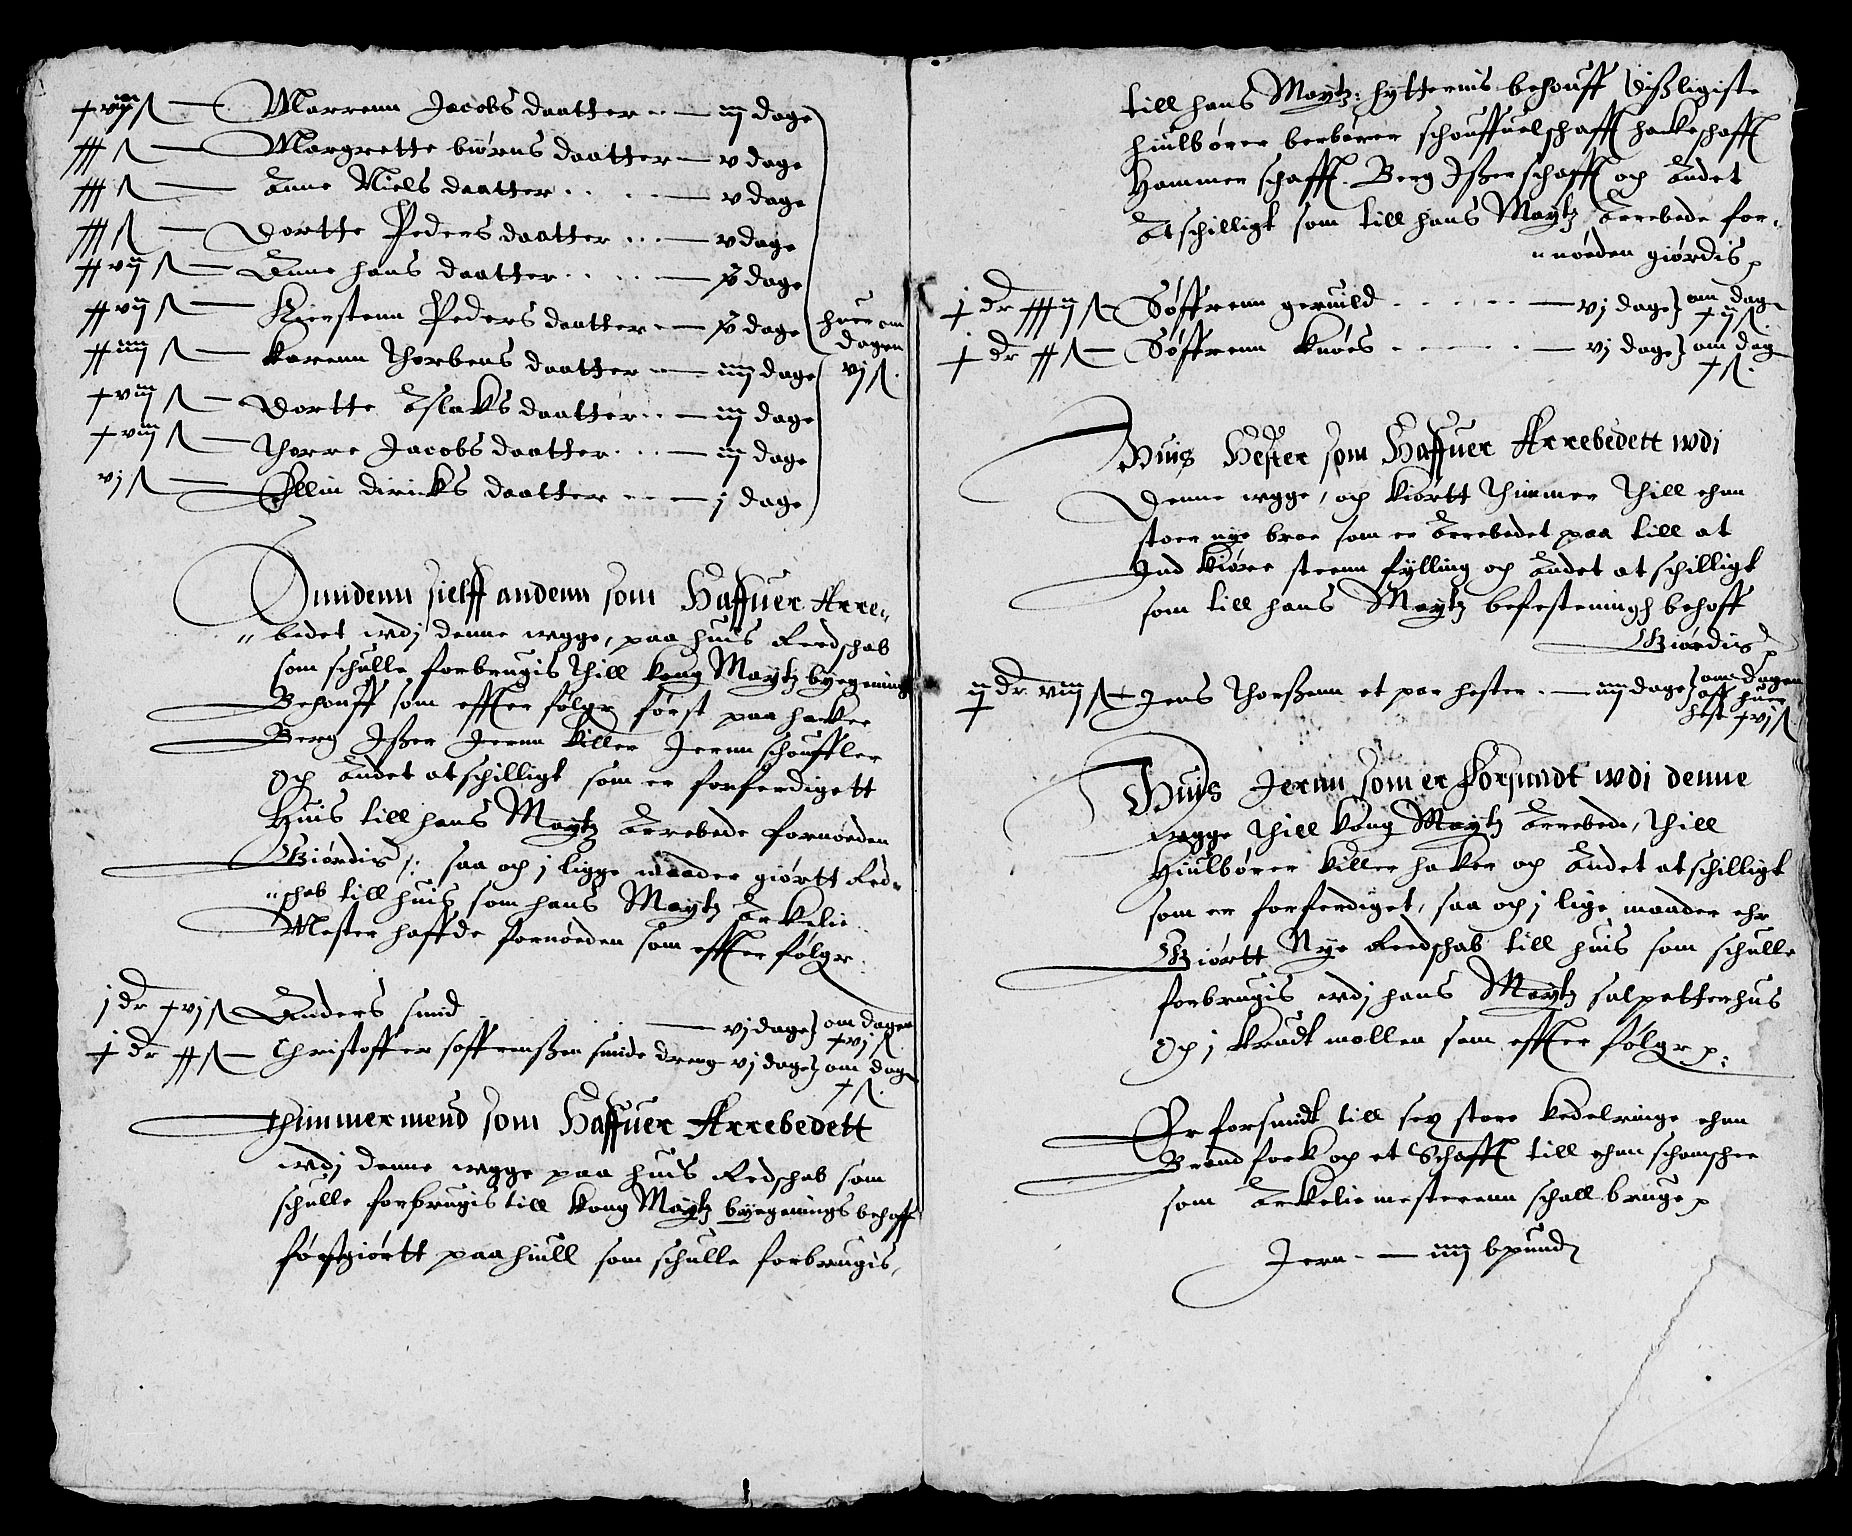 + viij ß — Marrenn Jacobs daatter — iij dage
+++ ß — Margrette biørns daatter — v dage
+++ ß — Anne Niels daatter — v dage
+++ ß — Dortte Peders daatter — v dage
++ vij ß — Anne hans daatter — dage
++ vij ß — Kierstenn Peders daatter — dage
huer om dagen vj ß.
++ iiij ß — Karenn Thorbens daatter — iiij dage
+ viij ß — Dortte Aslaks daatter — iij dage
+ viij ß — Thorre Jacobs daatter — iij dage
vj ß — Ellin diricks daatter — j dage
Smidenn sielff andenn som Haffuer Arre-
bedet wdj denne wgge, paa huis Reedschab
som schulle forbrugis Thill kong Maytz byegenings
Behouff som effter følgr først paa hacker
Berg Jßer Jernn killer Jernn schouffler
Och Andet atschilligt som er forferdigett
Huis till hans Maytz Arrebede fornøeden
Giørdis /: saa och j ligge maader giørtt Red-
schab till huis som hans Maytz Arkelie
Mester haffde fornøeden som effter følgr.
j dr + vj ß Anders smid — vj dage om dagen + vj ß
+ dr ++ ß — Christoffer søffrenßen smide dreng vj dage om dag + ß.
Thimmermend som Haffuer Arrebedett
wdj denne wgge paa huis Redschab som
schulle forbrugis till kong Maytz byegenings behoff
først giørtt paa hiull som schulle forbrugis,
till hans Maytz: hytternis behouff dißligiste
hiulbører berbører schouffuelschafft hackeschafft
Hammer schafft. Berg Jßer schafft och Andet
Atschilligt som till hans Maytz Arrebede for-
nøeden giørdis
+ dr +++ ij ß Søffrenn geruild — vj dage om dag + ij ß
+ dr ++ ß — Søffrenn knøes — vj dage om dag + ß.
Huis Hester som Haffuer Arrebedett wdj
Denne wgge, och kiørtt Thimmer Thill ehan
stoer nye broe som er Arrebedet paa till at
Ind kiøre steenn fylling och Andet at schilligt
som till hans Maytz befesteningh behoff
Giørdis
ij dr viij ß — Jens Thorßenn et par hester — iiij dage om dagen aff huer hest + vj ß.
Huis Jernn som er forsmidt wdj denne
wgge Thill kong Maytz Arrebede, Thill
Hiulbører killer haker och Andet at schilligt
som er forferdiget, saa och j lige maader ehr
Giørtt Nye Reedschab till huis som schulle
forbrugis wdj hans Maytz salpetterhus
Och j krudt møllen som effter følgr
Er forsmidt till sex store kedelringe ehan
Brand fork och et Schafft till ehan schomscher
som Arkeliemesterenn schall bruge
Jern — iiij bpund